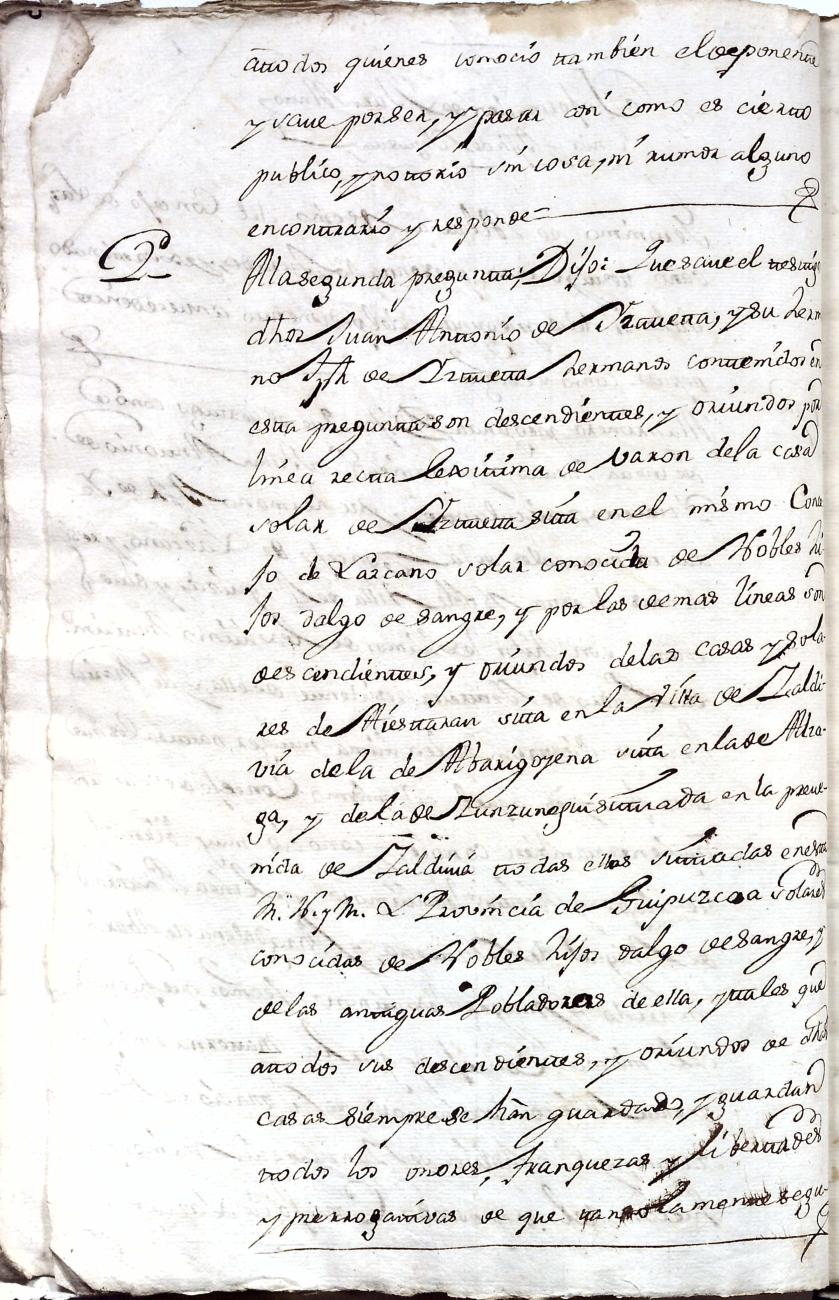 atodos quienes conocio tambien el deponente
y save por ser, y pasar asi como es cierto
publico, y notorio sin cosa, ni rumor alguno
encontrario y responde=
2ª
Ala segunda pregunta, Dijo: Que save el testigo
dhos Juan Antonio de Urtueta, y su herm
no Jph de Urtueta hermanos contenidos en
esta pregunta son descendientes, y oriundos por
linea recta lexitima de varon dela casa
solar de Urtueta sita en el mismo Conse
jo de Lazcano solar conocida de Nobles hi-
jos dalgo de sangre, y por las demas lineas son
descendientes, y oriundos delas casas y sola
res de Aiestaran sita en la Villa de Zaldi-
via dela de Abarigojena sita enlade Alza-
ga, y dela de Zunzunegui situada en la preve-
nida de Zaldivia todas ellas situadas en esta
M. N. y M. L Provincia de Guipuzcoa solares
conocidas de Nobles hijos dalgo de sangre, y
delas antiguas Pobladores de ella, y tales que
atodos sus descendientes, y oriundos de dhas
casas siempre se han guardado, y guardan
todos los onores, franquezas y libertades
y prerrogativas de que tan solamente segu-